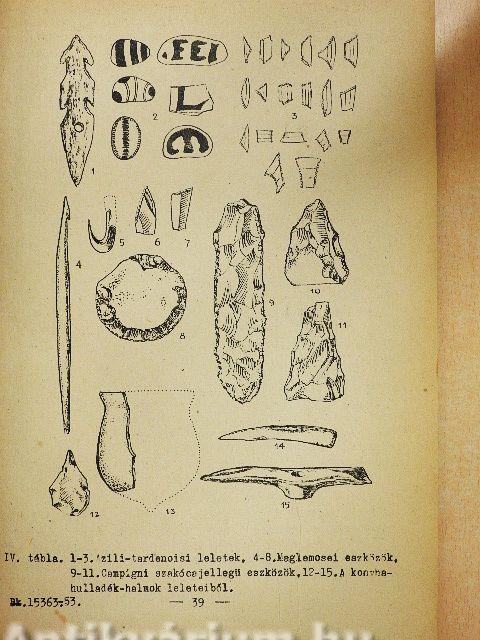 FEI
1
2
3
4
5
6
7
8
9
10
11
12
13
14
15
IV. tábla. 1-3.'zili-tardenoisi leletek, 4-8.Maglemosei eszközök,
9-11.Campigni szakócajellegü eszközök,12-15.A konyha-
hulladék-halmok leleteiből.
Bk.15363-53.
— 39 —
Antikvárium.hu